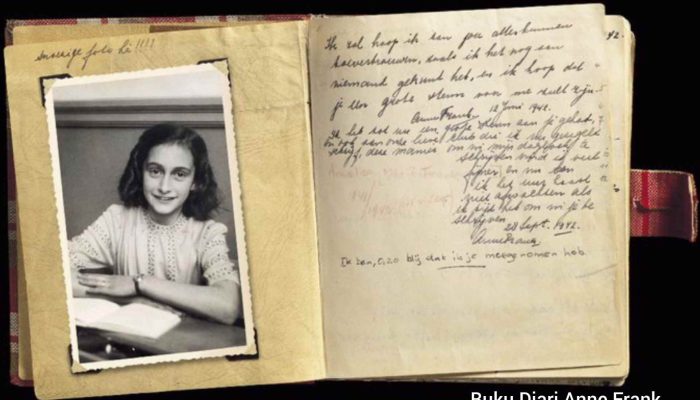 Snoezige foto hè!!!!
42.
Ik zal hoop ik aan jou alles kunnen
toevertrouwen, zoals ik het nog aan
niemand gekund heb, en ik hoop dat
je een grote steun voor me zult zijn.
Anne Frank. 12 Juni 1942.
Ik heb tot nu een grote steun aan je gehad,
en ook aan onze lieve club die ik nu geregeld
schrijf, deze manier om in mijn dagboek te
schrijven vind ik veel
fijner en nu kan
ik het uur haast
niet afwachten als
ik tijd heb om in je te
schrijven.
28 Sept. 1942.
Anne Frank.
Ik ben, o, zo blij dat ik je meegenomen heb.
Buku Diari Anne Frank